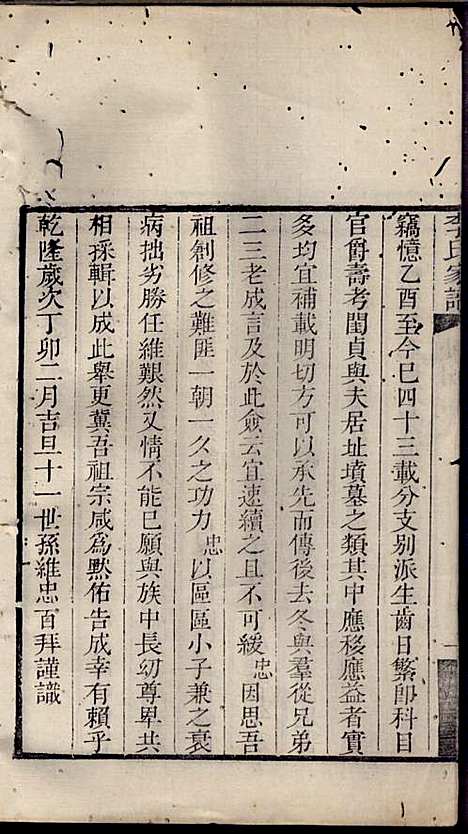 李氏家譜
竊憶乙酉至今已四十三載分支別派生齒日繁即科目
官爵壽考閨貞與夫居址墳墓之類其中應移應益者實
多均宜補載明切方可以承先而傳後去冬與羣從兄弟
二三老成言及於此僉云宜速續之且不可緩忠因思吾
祖創修之難匪一朝一久之功力忠以區區小子兼之衰
病拙劣勝任維艱然又情不能已願與族中長幼尊卑共
相採輯以成此舉更冀吾祖宗咸為默佑告成幸有賴乎
乾隆歲次丁卯二月吉旦十一世孫維忠百拜謹識